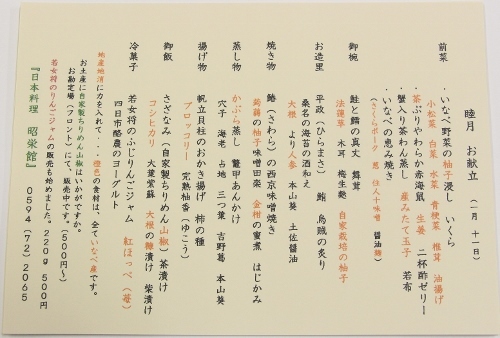 睦月　お献立　（一月　十一日）
前菜
・いなべ野菜の柚子浸し　いくら
小松菜　白菜　水菜　青梗菜　椎茸　油揚げ
・茶ぶりやわらか赤海鼠　生姜　二杯酢ゼリー
・蟹入り茶わん蒸し　産みたて玉子　若布
・いなべの恵み焼き
（さくらポーク　葱　住人十味噌　醤油麹）
御椀
鮭と鱈の真丈　舞茸
法蓮草　木耳　梅生麩　自家栽培の柚子
お造里
平政（ひらまさ）　鮪　烏賊の炙り
桑名の海苔の酒和え
大根　より人参　本山葵　土佐醤油
焼き物
鰆（さわら）の西京味噌焼き
蒟蒻の柚子味噌田楽　金柑の蜜煮　はじかみ
蒸し物
かぶら蒸し　鼈甲あんかけ
穴子　海老　占地　三つ葉　吉野葛　本山葵
揚げ物
帆立貝柱のおかき揚げ　柿の種
ブロッコリー　完熟柚香（ゆこう）
御飯
さざなみ（自家製ちりめん山椒）茶漬け
コシヒカリ　大葉紫蘇　大根の糠漬け　柴漬け
冷菓子
若女将のふじりんごジャム　紅ほっぺ（苺）
四日市酪農のヨーグルト
地産地消に力を入れて・・橙色の食材は、全ていなべ産です。
お土産に自家製ちりめん山椒はいかがですか。
お勘定場（フロント）にて、販売中です。（500円〜）
若女将のりんごジャムの販売も始めました。220g　500円
『日本料理　昭栄館』　0594（72）2065